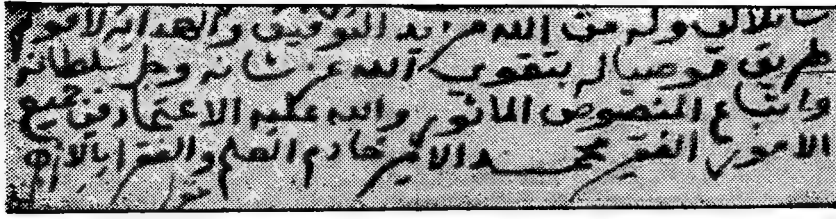 سائلا لي وله من الله مزيد التوفيق والهداية لاقوم
طريق موصيا له بتقوي الله عز شانه وجل سلطانه
واتباع المنصوص الماثور والله عليه الاعتماد في جميع
الامور الفقير محمد الامير خادم العلم والفقرا بالازهر